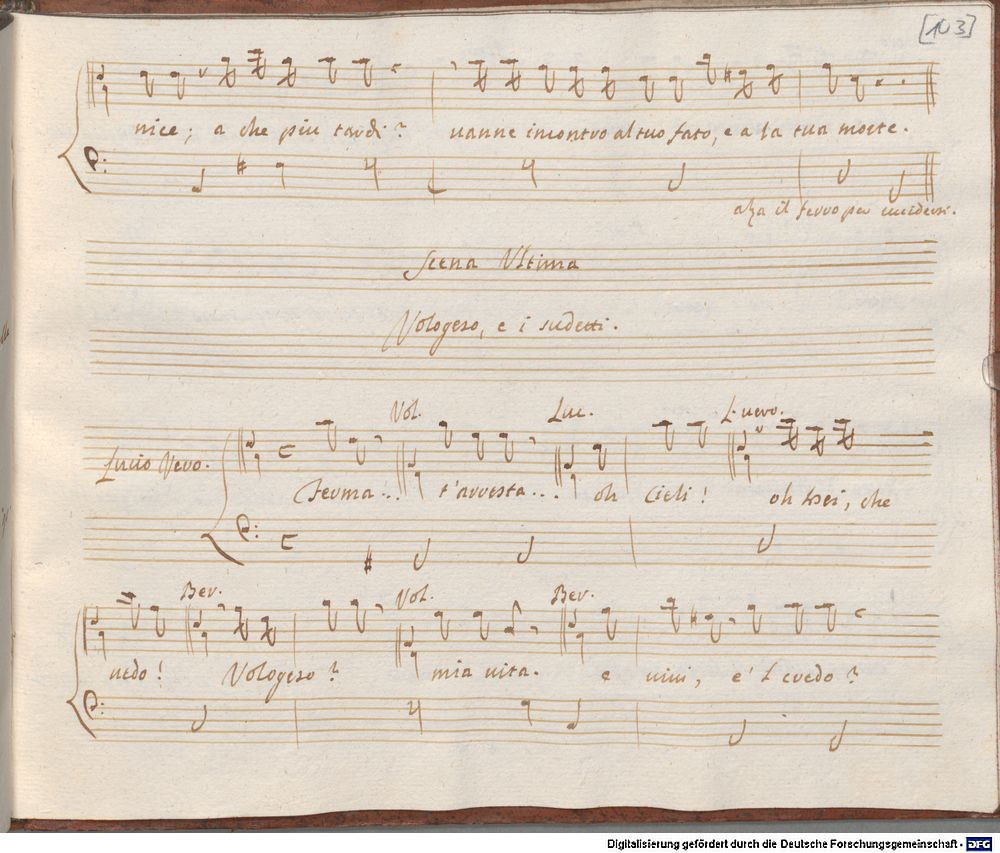 [103]
nice; a che piu tardi? uanne incontro al tuo fato, e a la tua morte.
alza il ferro per uccidersi.
Scena Ultima
Vologeso, e i sudetti.
Vol. Luc. L. uero.
Lucio Vero.
Ferma... t'arresta... oh Cieli! oh Dei, che
Ber. Vol. Ber.
uedo! Vologeso? mia uita. e uiui, e'l credo?
Digitalisierung gefördert durch die Deutsche Forschungsgemeinschaft - DFG